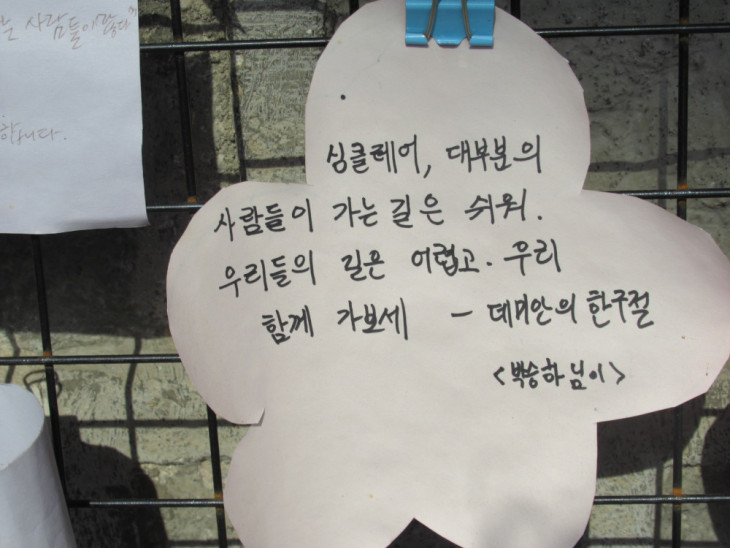 는 사람들이 많다"
합니다.
싱클레어, 대부분의
사람들이 가는 길은 쉬워.
우리들의 길은 어렵고. 우리
함께 가보세 - 데미안의 한구절
<박승하님이>